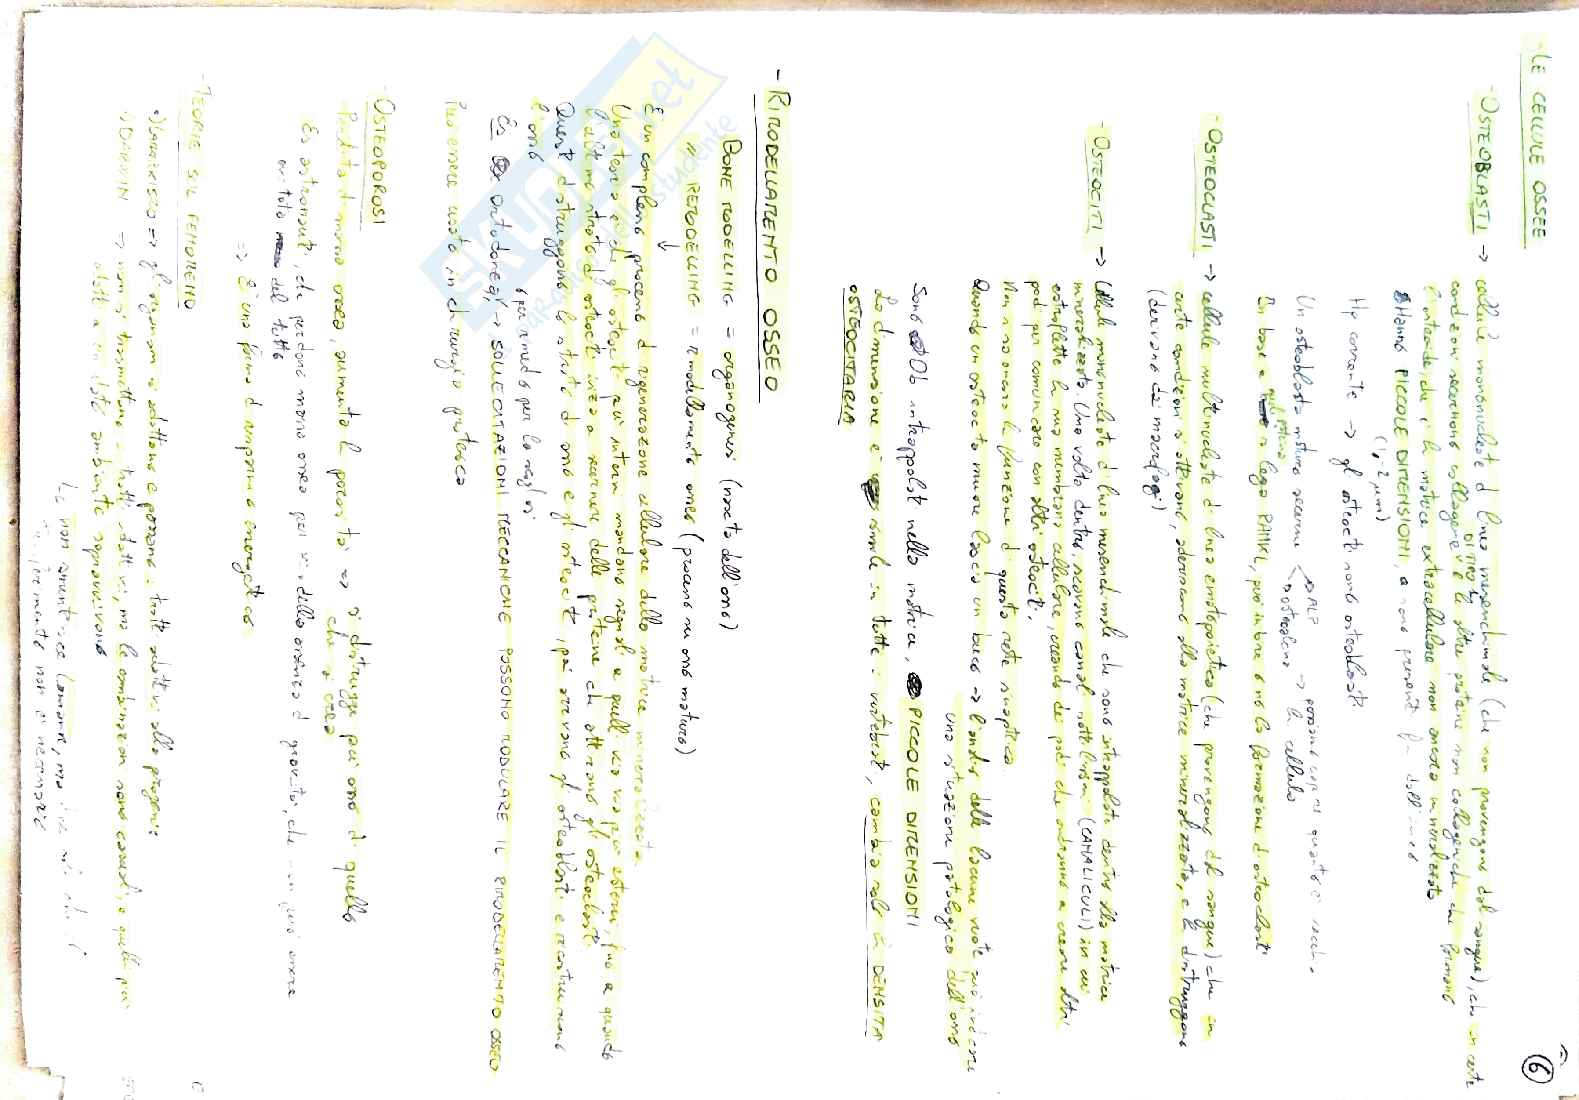 6
- LE CELLULE OSSEE
- OSTEOBLASTI → cellule mononucleate di linea mesenchimale (che non provengono dal sangue), che in certe
condizioni secernono collagene e le altre proteine non collageniche che formano
l'osteoide che è la matrice extracellulare non ancora mineralizzata
Hanno PICCOLE DIMENSIONI, e sono presenti
DI TIPO I
(1,-2 μm)
No corrente → gli osteociti sono osteoblasti
Un osteoblasto maturo secerne
ALP
osteocalcina → possiamo capire quanto è vecchia
la cellula
In base a lega RANKL, può inibire o no la formazione di osteoclasti
- OSTEOCLASTI → cellule multinucleate di linea emopoietica (che provengono dal sangue) che in
certe condizioni si attivano, aderiscono alla matrice mineralizzata, e la distruggono
(derivano dai macrofagi)
- OSTEOCITI → Cellule mononucleate di linea mesenchimale che sono intrappolate dentro alla matrice
mineralizzata. Una volta dentro, scavano canali sottilissimi (CANALICULI) in cui
estroflette la sua membrana cellulare, creando dei podi che andranno a creare altri
podi per comunicare con altri osteociti.
Non si conosce la funzione di questa rete sinaptica.
Quando un osteocita muore lascia un buco → l'indice delle lacune vuote può indicare
una situazione patologica dell'osso
Sono Ob intrappolati nella matrice, PICCOLE DIMENSIONI
La dimensione è simile in tutti i vertebrati, cambia solo la DENSITÀ
OSTEOCITARIA
- RIMODELLAMENTO OSSEO
BONE MODELLING = organogenesi (nascita dell'osso)
" REMODELLING = rimodellamento osseo (processo su osso maturo)
↓
È un complesso processo di rigenerazione cellulare della matrice mineralizzata
Una teoria è che gli osteociti più interni mandano segnali a quelli via via più esterni, fino a quando
l'ultimo strato di osteociti inizia a secernere delle proteine che attivano gli osteoclasti.
Questi distruggono lo strato di osso e gli osteociti, poi arrivano gli osteoblasti e ricostruiscono
l'osso
Es ortodonzia, → SOLLECITAZIONI MECCANICHE POSSONO MODULARE IL RIMODELLAMENTO OSSEO
Può essere usato in chirurgia protesica
- OSTEOPOROSI
Perdita di massa ossea, aumenta la porosità → si distrugge più osso di quello
che si crea
Es astronauti, che perdono massa ossea per via della assenza di gravità, che non può essere
evitata del tutto
⇒ È una forma di risparmio energetico
- TEORIE SUL FENOMENO
•) LAMARKISMO ⇒ gli organismi si adattano e passano i tratti adattivi alla progenie
•) DARWIN ⇒ non si trasmettono i tratti adattivi, ma le combinazioni sono casuali, e quelli più
adatti a un dato ambiente sopravvivono
↳ non smentisce Lamarck, ma
non è necessario